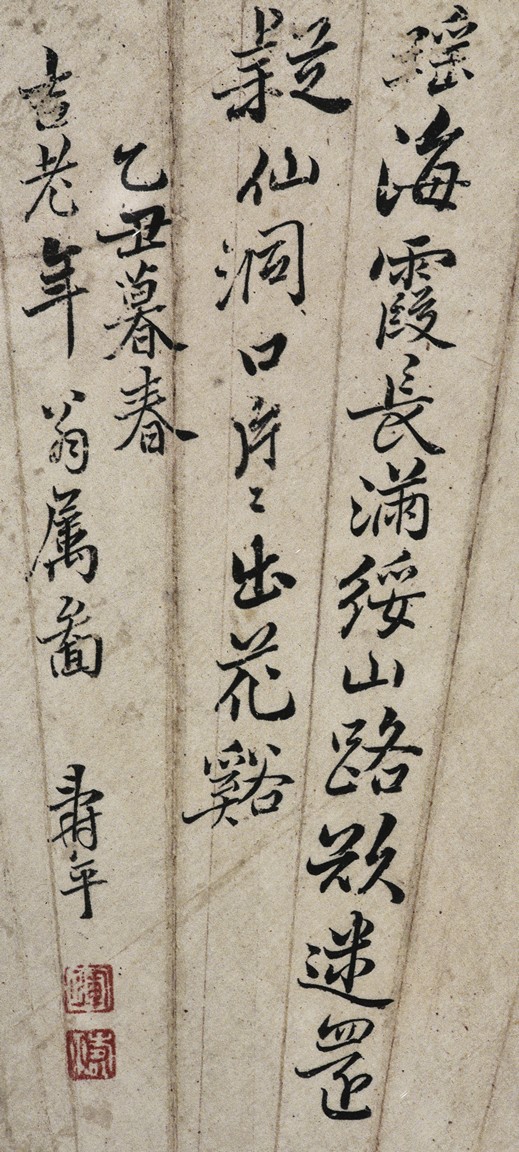 瑶海霞長滿綏山路欲迷還
疑仙洞口片〻出花谿
乙丑暮春
吉老年翁属圖 壽平